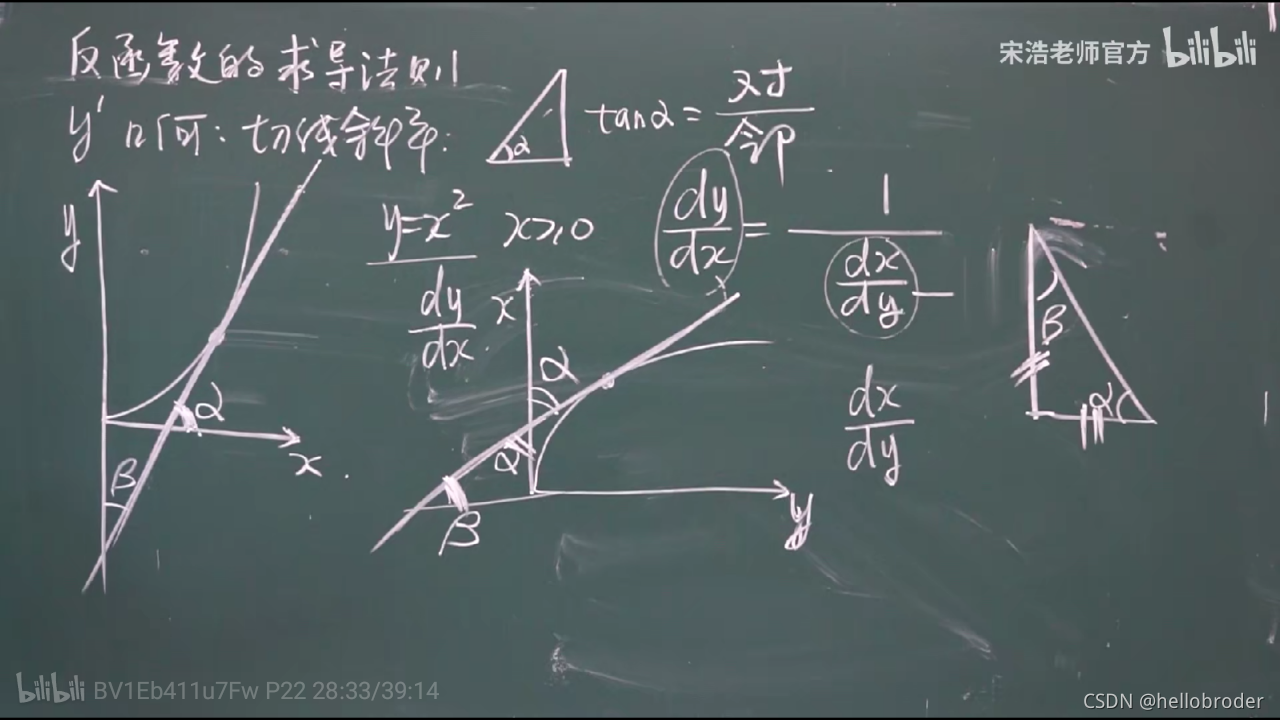 反函数的求导法则
宋浩老师官方 bilibili
y' 几何: 切线斜率:
α tanα = 对/邻
y=x² x≥0
dy/dx = 1/(dx/dy)
dy/dx
dx/dy
y
x
α
β
x
y
α
α
β
β
α
bilibili BV1Eb411u7Fw P22 28:33/39:14
CSDN @hellobroder